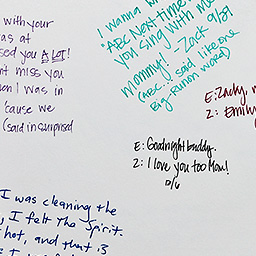 with your
as at
sed you A LOT!
nt miss you
en I was in
'cause we
(said in surprised
I wanna
"ABC Next time
you sing with me
Mommy!" -Zach 9/27
(ABC... said like one
Big Run on word)
E: Zachy,
Z: Emily
E: Goodnight buddy.
Z: I love you too Mom!
10/6
I was cleaning the
, I felt the Spirit.
hot, and that is